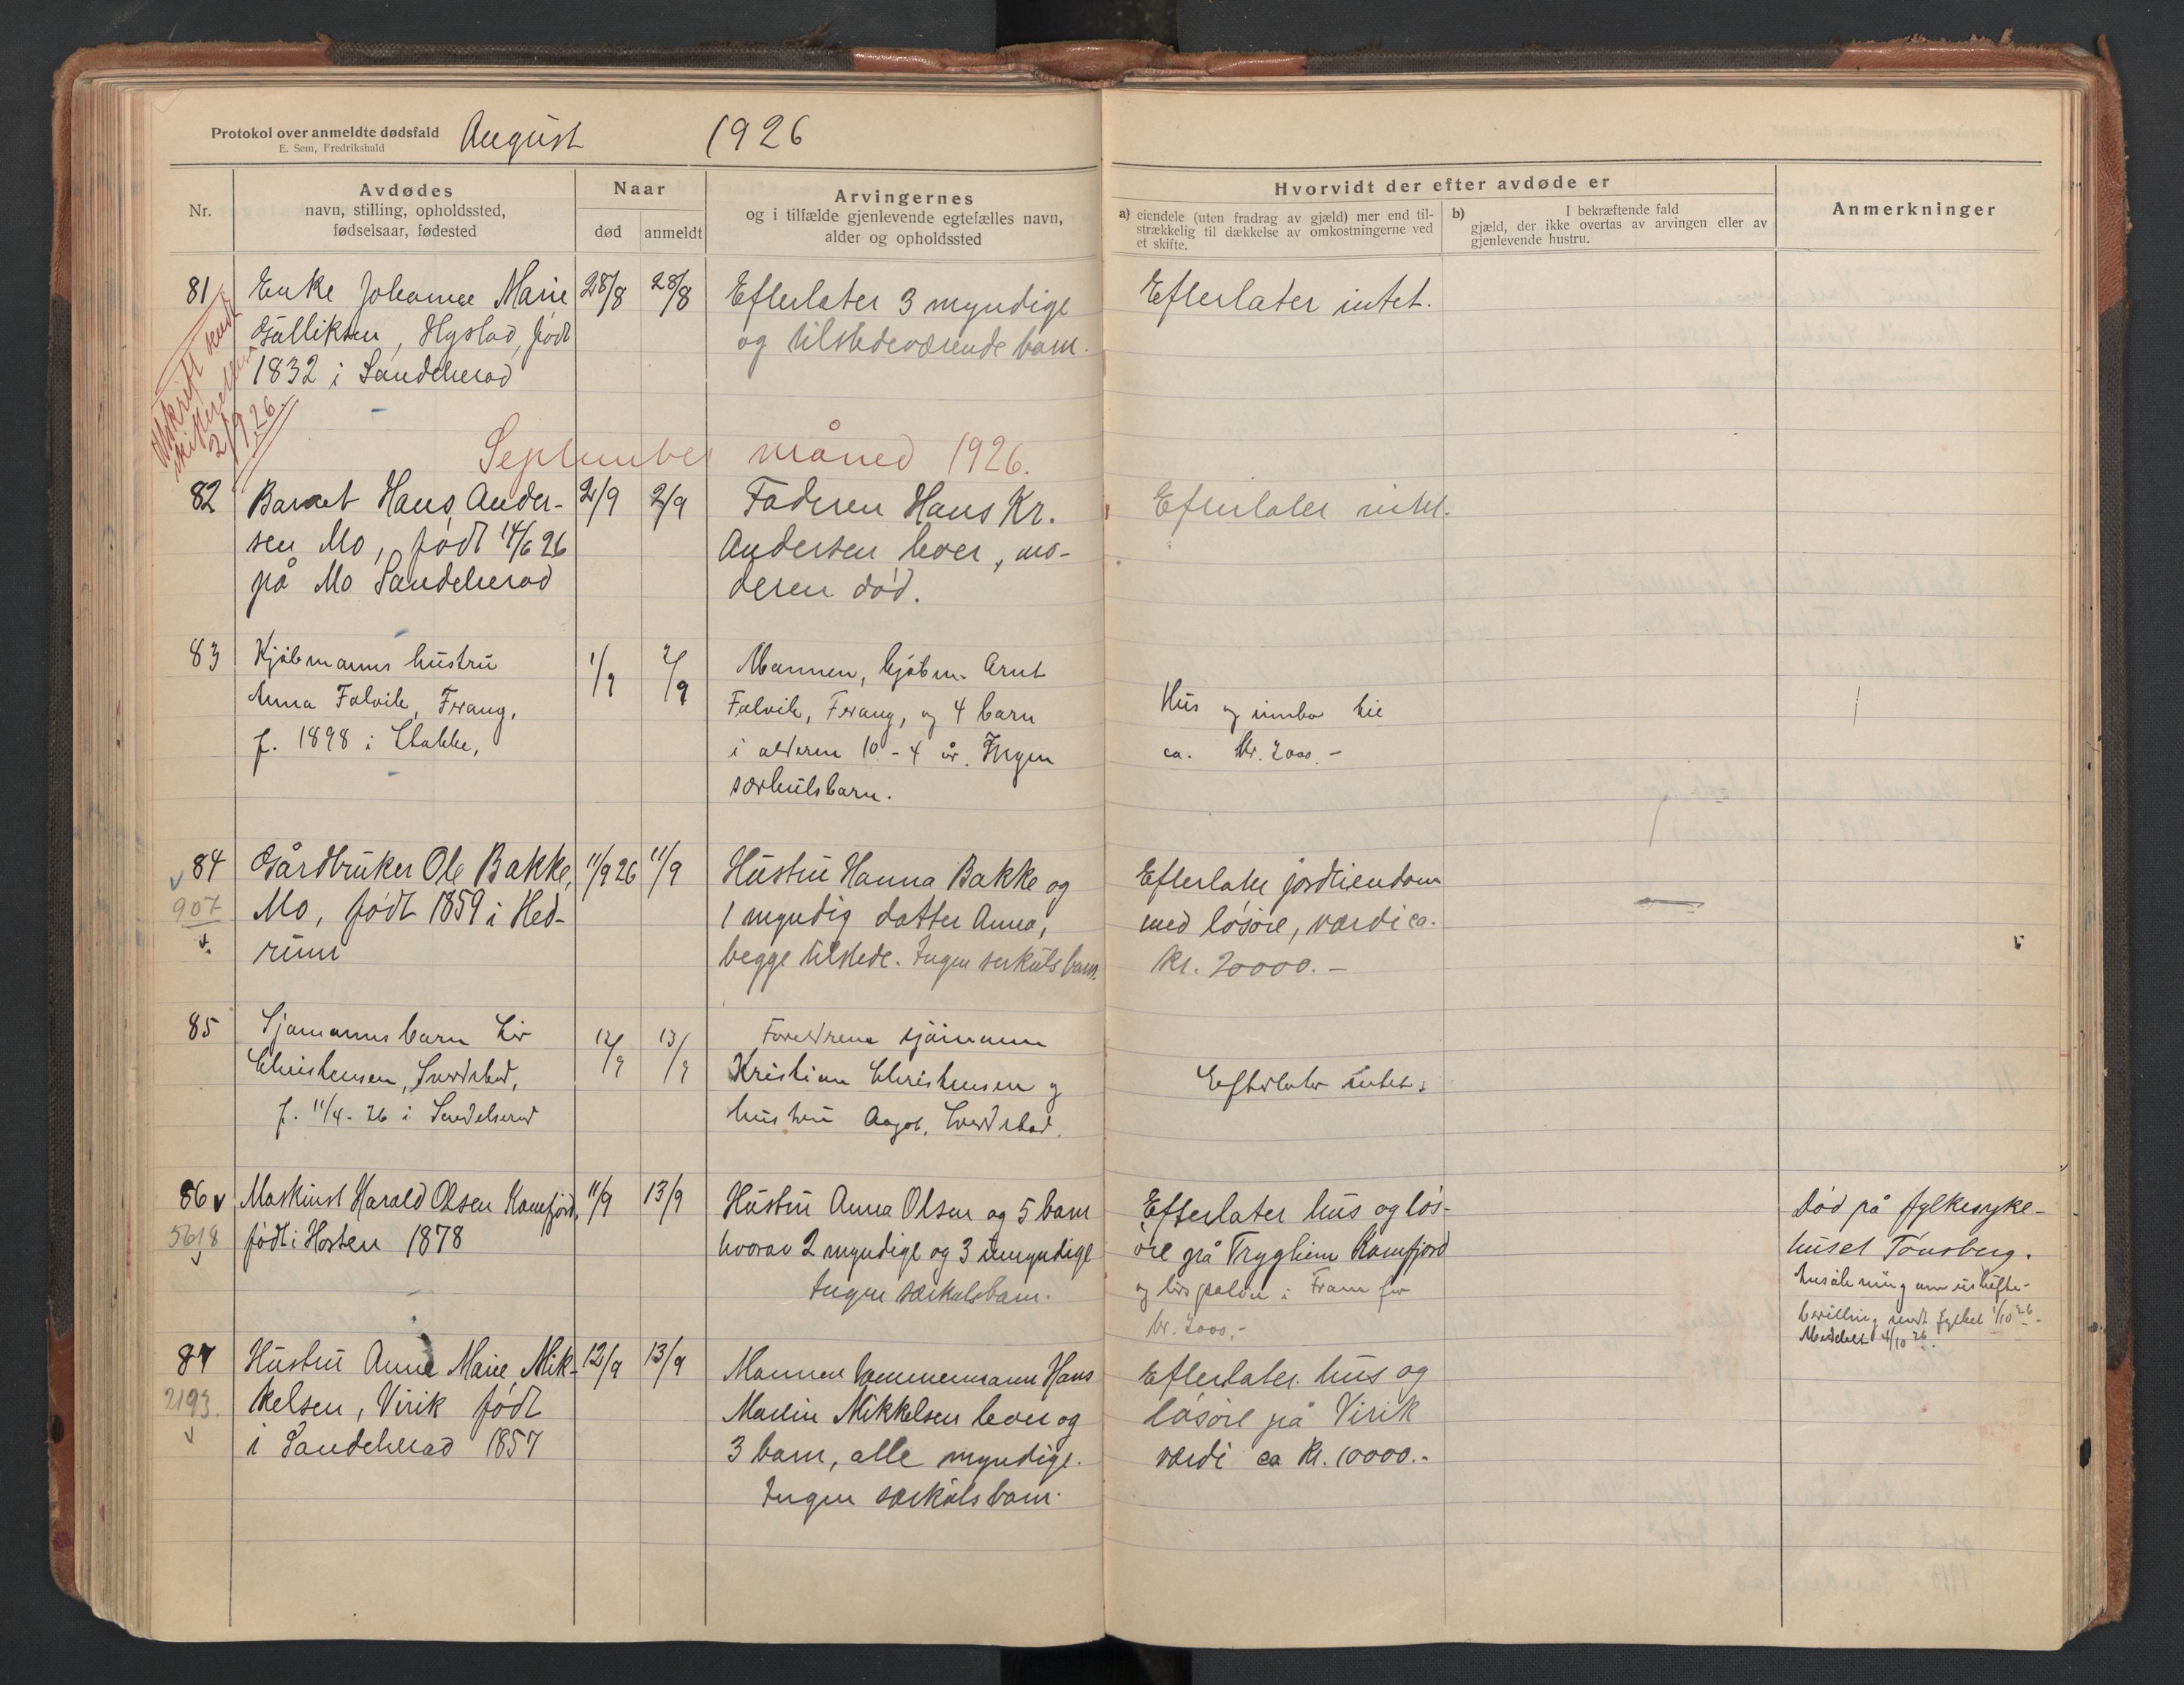 Protokol over anmeldte dødsfald August 1926
E. Sem, Fredrikshald
Nr.
Avdødes
navn, stilling, opholdssted,
fødselsaar, fødested
Naar
død anmeldt
Arvingernes
og i tilfælde gjenlevende egtefælles navn,
alder og opholdssted
Hvorvidt der efter avdøde er
a) eiendele (uten fradrag av gjæld) mer end til-
strækkelig til dækkelse av omkostningerne ved
et skifte.
b) I bekræftende fald
gjæld, der ikke overtas av arvingen eller av
gjenlevende hustru.
Anmerkninger
81 Enke Johanne Marie 28/8 28/8
Gulliksen, Hystad, født
1832 i Sandeherad
Efterlater 3 myndige
og tilstedeværende barn.
Efterlater intet.
Avskrift sendt
2/9 26.
September måned 1926.
82 Barnet Hans Ander- 2/9 2/9
sen Mo, født 14/6 26
på Mo Sandeherad
Faderen Hans Kr.
Andersen lever, mo-
deren død.
Efterlater intet.
83 Kjøbmanns hustru 1/9 2/9
Anna Falvik, Frang,
f. 1898 i Stokke,
Mannen, kjøbm. Arnt
Falvik, Frang, og 4 barn
i alderen 10 - 4 år. Ingen
særkulsbarn.
Hus og innbo til
ca. kr. 2000.-
84 Gårdbruker Ole Bakke, 11/9 26 11/9
907 Mo, født 1859 i Hed-
rum
Hustru Hanna Bakke og
1 myndig datter Anna,
begge tilstede. Ingen særkulsbarn.
Efterlater jordeiendom
med løsøre, værdi ca.
kr. 20000.-
85 Sjømanns barn Liv 12/9 13/9
Christensen,
f. 11/4-26 i Sandeherad
Foreldrene sjømann
Kristian Christensen og
hustru
Efterlater intet.
86 Maskinist Harald Olsen Kamfjord, 11/9 13/9
5618 født i Horten 1878
Hustru Anna Olsen og 5 barn
hvorav 2 myndige og 3 umyndige
Ingen særkulsbarn.
Efterlater hus og løs-
øre på Trygheim Kamfjord
og livspolise i Fram for
kr. 2000.-
Død på fylkessyke-
huset Tønsberg.
Ansøkning om uskifte-
bevilling sendt fylket 1/10 26.
Meddelt 4/10 26.
87 Hustru Anne Marie Mik- 12/9 13/9
2193. kelsen, Virik født
i Sandeherad 1857
Mannen tømmermann Hans
Martin Mikkelsen lever og
3 barn, alle myndige.
Ingen særkulsbarn.
Efterlater hus og
løsøre på Virik
værdi ca kr. 10000.-